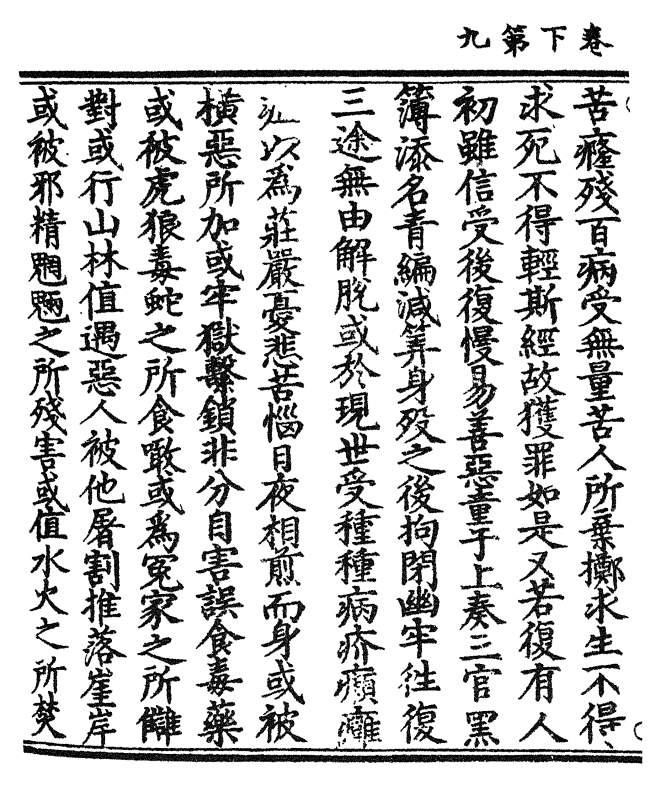 卷下第九
苦癃殘百病受無量苦人所棄擲求生不得
求死不得輕斯經故獲罪如是又若復有人
初雖信受後復慢易善惡童子上奏三官黑
簿添名青編減筭身歿之後拘閉幽牢徃復
三途無由解脫或於現世受種種病疥癩癰
以爲莊嚴憂悲苦惱日夜相煎而身或被
橫惡所加或牢獄繫鎖非分自害誤食毒藥
或被虎狼毒蛇之所食噉或爲冤家之所讎
對或行山林值遇惡人被他屠割推落崖岸
或被邪精魍魎之所殘害或值水火之所焚